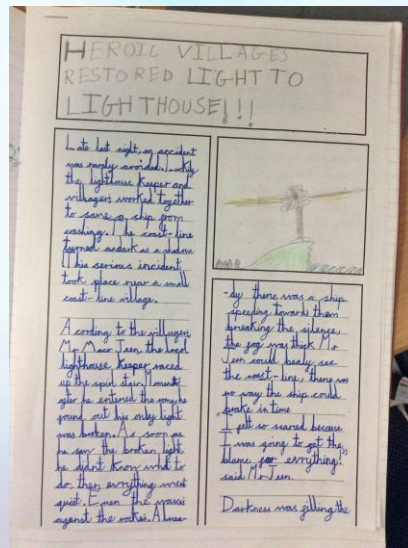 HEROIC VILLAGES
RESTORED LIGHT TO
LIGHTHOUSE!!!
Late last night, an accident
was narely avoided. Luckily
the lighthouse keeper and
villagers worked together
to save a ship from
crashing. The coast-line
turned as dark as a shadow
This serious incident
took place near a small
coast-line village.
Acording to the villagers
Mr. Jeen, the local
lighthouse keeper raced
up the spiral stairs. Moments
after he entered the room, he
found out his only light
was broken. As soon as
he saw the broken light
he didnt know what to
do, then evrything went
quiet. Even the waves
against the rockes. Alrea-
-dy there was a ship
speeding towards them
breaking the silence.
the fog was thick Mr
Jeen could bealy see
the coast-line, there was
no way the ship could
brake in time.
I felt so scared because
I was going to get the
blame for evrything!"
said Mr Jeen.
Darkness was filling the